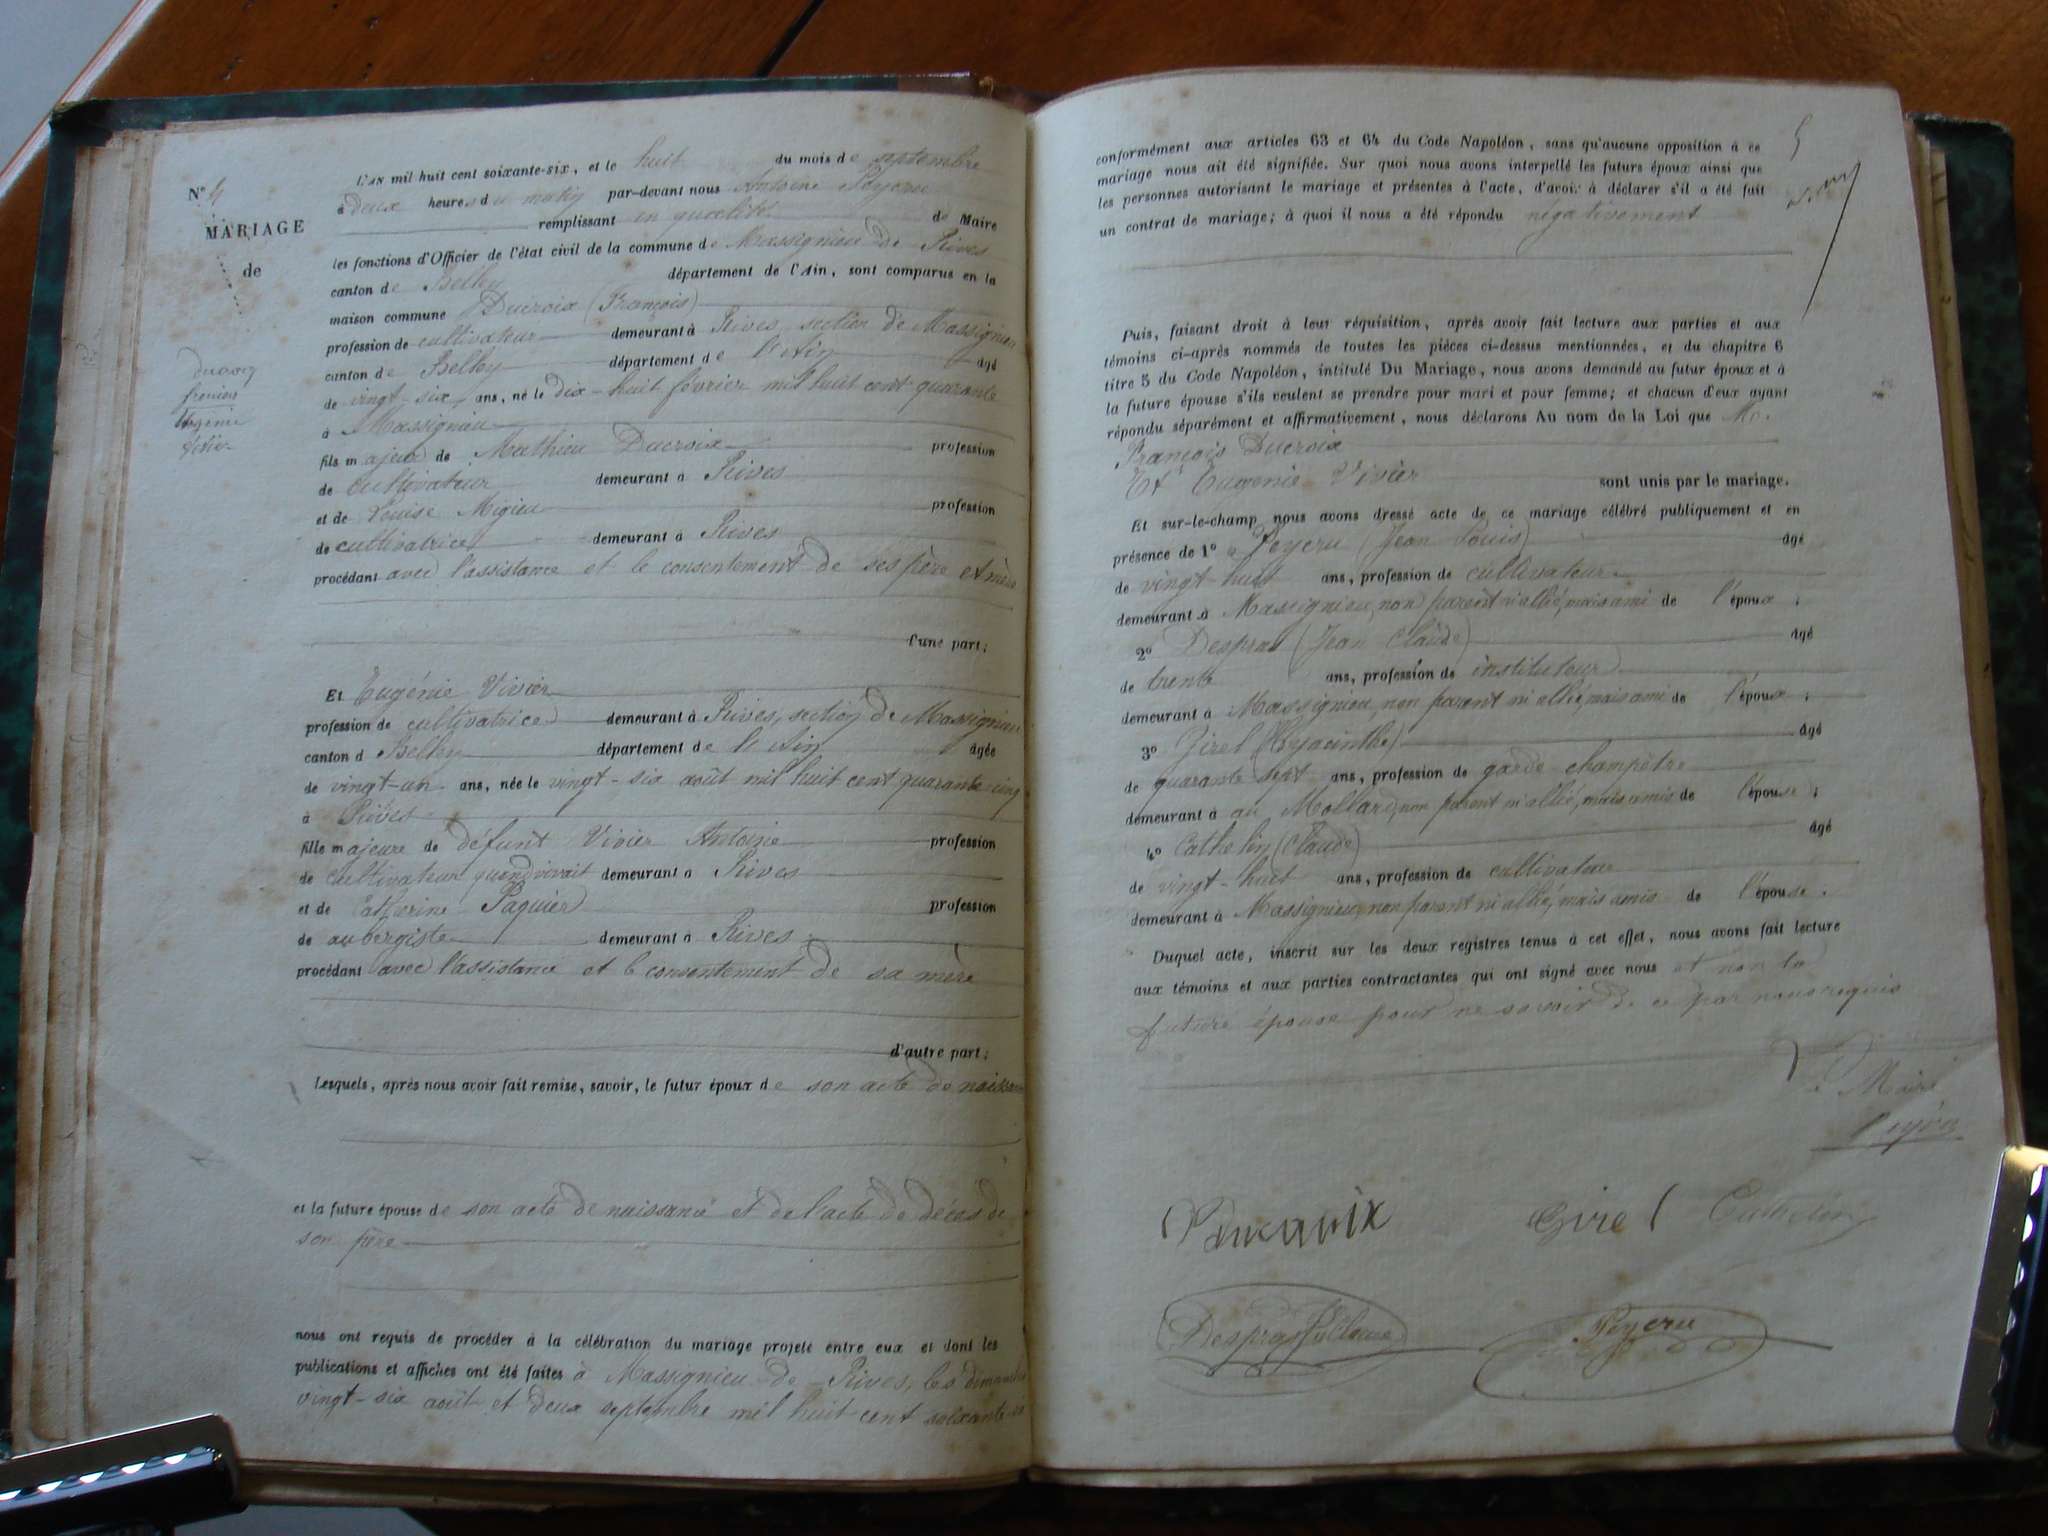 N° 4
MARIAGE
de
Ducroix
François
Eugénie
Vivier
L'AN mil huit cent soixante-six, et le huit du mois de septembre
à deux heures du matin par-devant nous Antoine Peyeru
remplissant en qualité de Maire
les fonctions d'Officier de l'état civil de la commune de Massignieu de Rives
canton de Belley département de l'Ain, sont comparus en la
maison commune Ducroix (François)
profession de cultivateur demeurant à Rives, section de Massignieu
canton de Belley département de l'Ain âgé
de vingt-six ans, né le dix-huit février mil huit cent quarante
à Massignieu
fils majeur de Mathieu Ducroix profession
de cultivateur demeurant à Rives
et de Louise Migieu profession
de cultivatrice demeurant à Rives
procédant avec l'assistance et le consentement de ses père et mère
d'une part;
Et Eugénie Vivier
profession de cultivatrice demeurant à Rives, section de Massignieu
canton d Belley département de l'Ain âgée
de vingt-un ans, née le vingt-six août mil huit cent quarante cinq
à Rives
fille majeure de défunt Vivier Antoine profession
de cultivateur quand vivait demeurant à Rives
et de Catherine Paquier profession
de aubergiste demeurant à Rives
procédant avec l'assistance et le consentement de sa mère
d'autre part;
Lesquels, après nous avoir fait remise, savoir, le futur époux de son acte de naissance
et la future épouse de son acte de naissance et de l'acte de décès de
son père
nous ont requis de procéder à la célébration du mariage projeté entre eux et dont les
publications et affiches ont été faites à Massignieu de Rives, les dimanches
vingt-six août et deux septembre mil huit cent soixante-six
5
conformément aux articles 63 et 64 du Code Napoléon, sans qu'aucune opposition à ce
mariage nous ait été signifiée. Sur quoi nous avons interpellé les futurs époux ainsi que
les personnes autorisant le mariage et présentes à l'acte, d'avoir à déclarer s'il a été fait
un contrat de mariage; à quoi il nous a été répondu négativement
Puis, faisant droit à leur réquisition, après avoir fait lecture aux parties et aux
témoins ci-après nommés de toutes les pièces ci-dessus mentionnées, et du chapitre 6
titre 5 du Code Napoléon, intitulé Du Mariage, nous avons demandé au futur époux et à
la future épouse s'ils veulent se prendre pour mari et pour femme; et chacun d'eux ayant
répondu séparément et affirmativement, nous déclarons Au nom de la Loi que Mr.
François Ducroix
Et Eugénie Vivier sont unis par le mariage.
Et sur-le-champ nous avons dressé acte de ce mariage célébré publiquement et en
présence de 1° Peyeru (Jean Louis) âgé
de vingt-huit ans, profession de cultivateur
demeurant à Massignieu, non parent ni allié, mais ami de l'époux;
2° Despras (Jean Claude) âgé
de trente ans, profession de instituteur
demeurant à Massignieu, non parent ni allié, mais ami de l'époux;
3° Girel (Hyacinthe) âgé
de quarante sept ans, profession de garde champêtre
demeurant à au Mollard, non parent ni allié, mais amis de l'épouse;
4° Cathelin (Claude) âgé
de vingt-huit ans, profession de cultivateur
demeurant à Massignieu, non parent ni allié, mais amis de l'épouse.
Duquel acte, inscrit sur les deux registres tenus à cet effet, nous avons fait lecture
aux témoins et aux parties contractantes qui ont signé avec nous et non la
future épouse pour ne savoir de ce par nous requis
Le Maire
Peyeru
Ducroix Girel Cathelin
Despras Peyeru